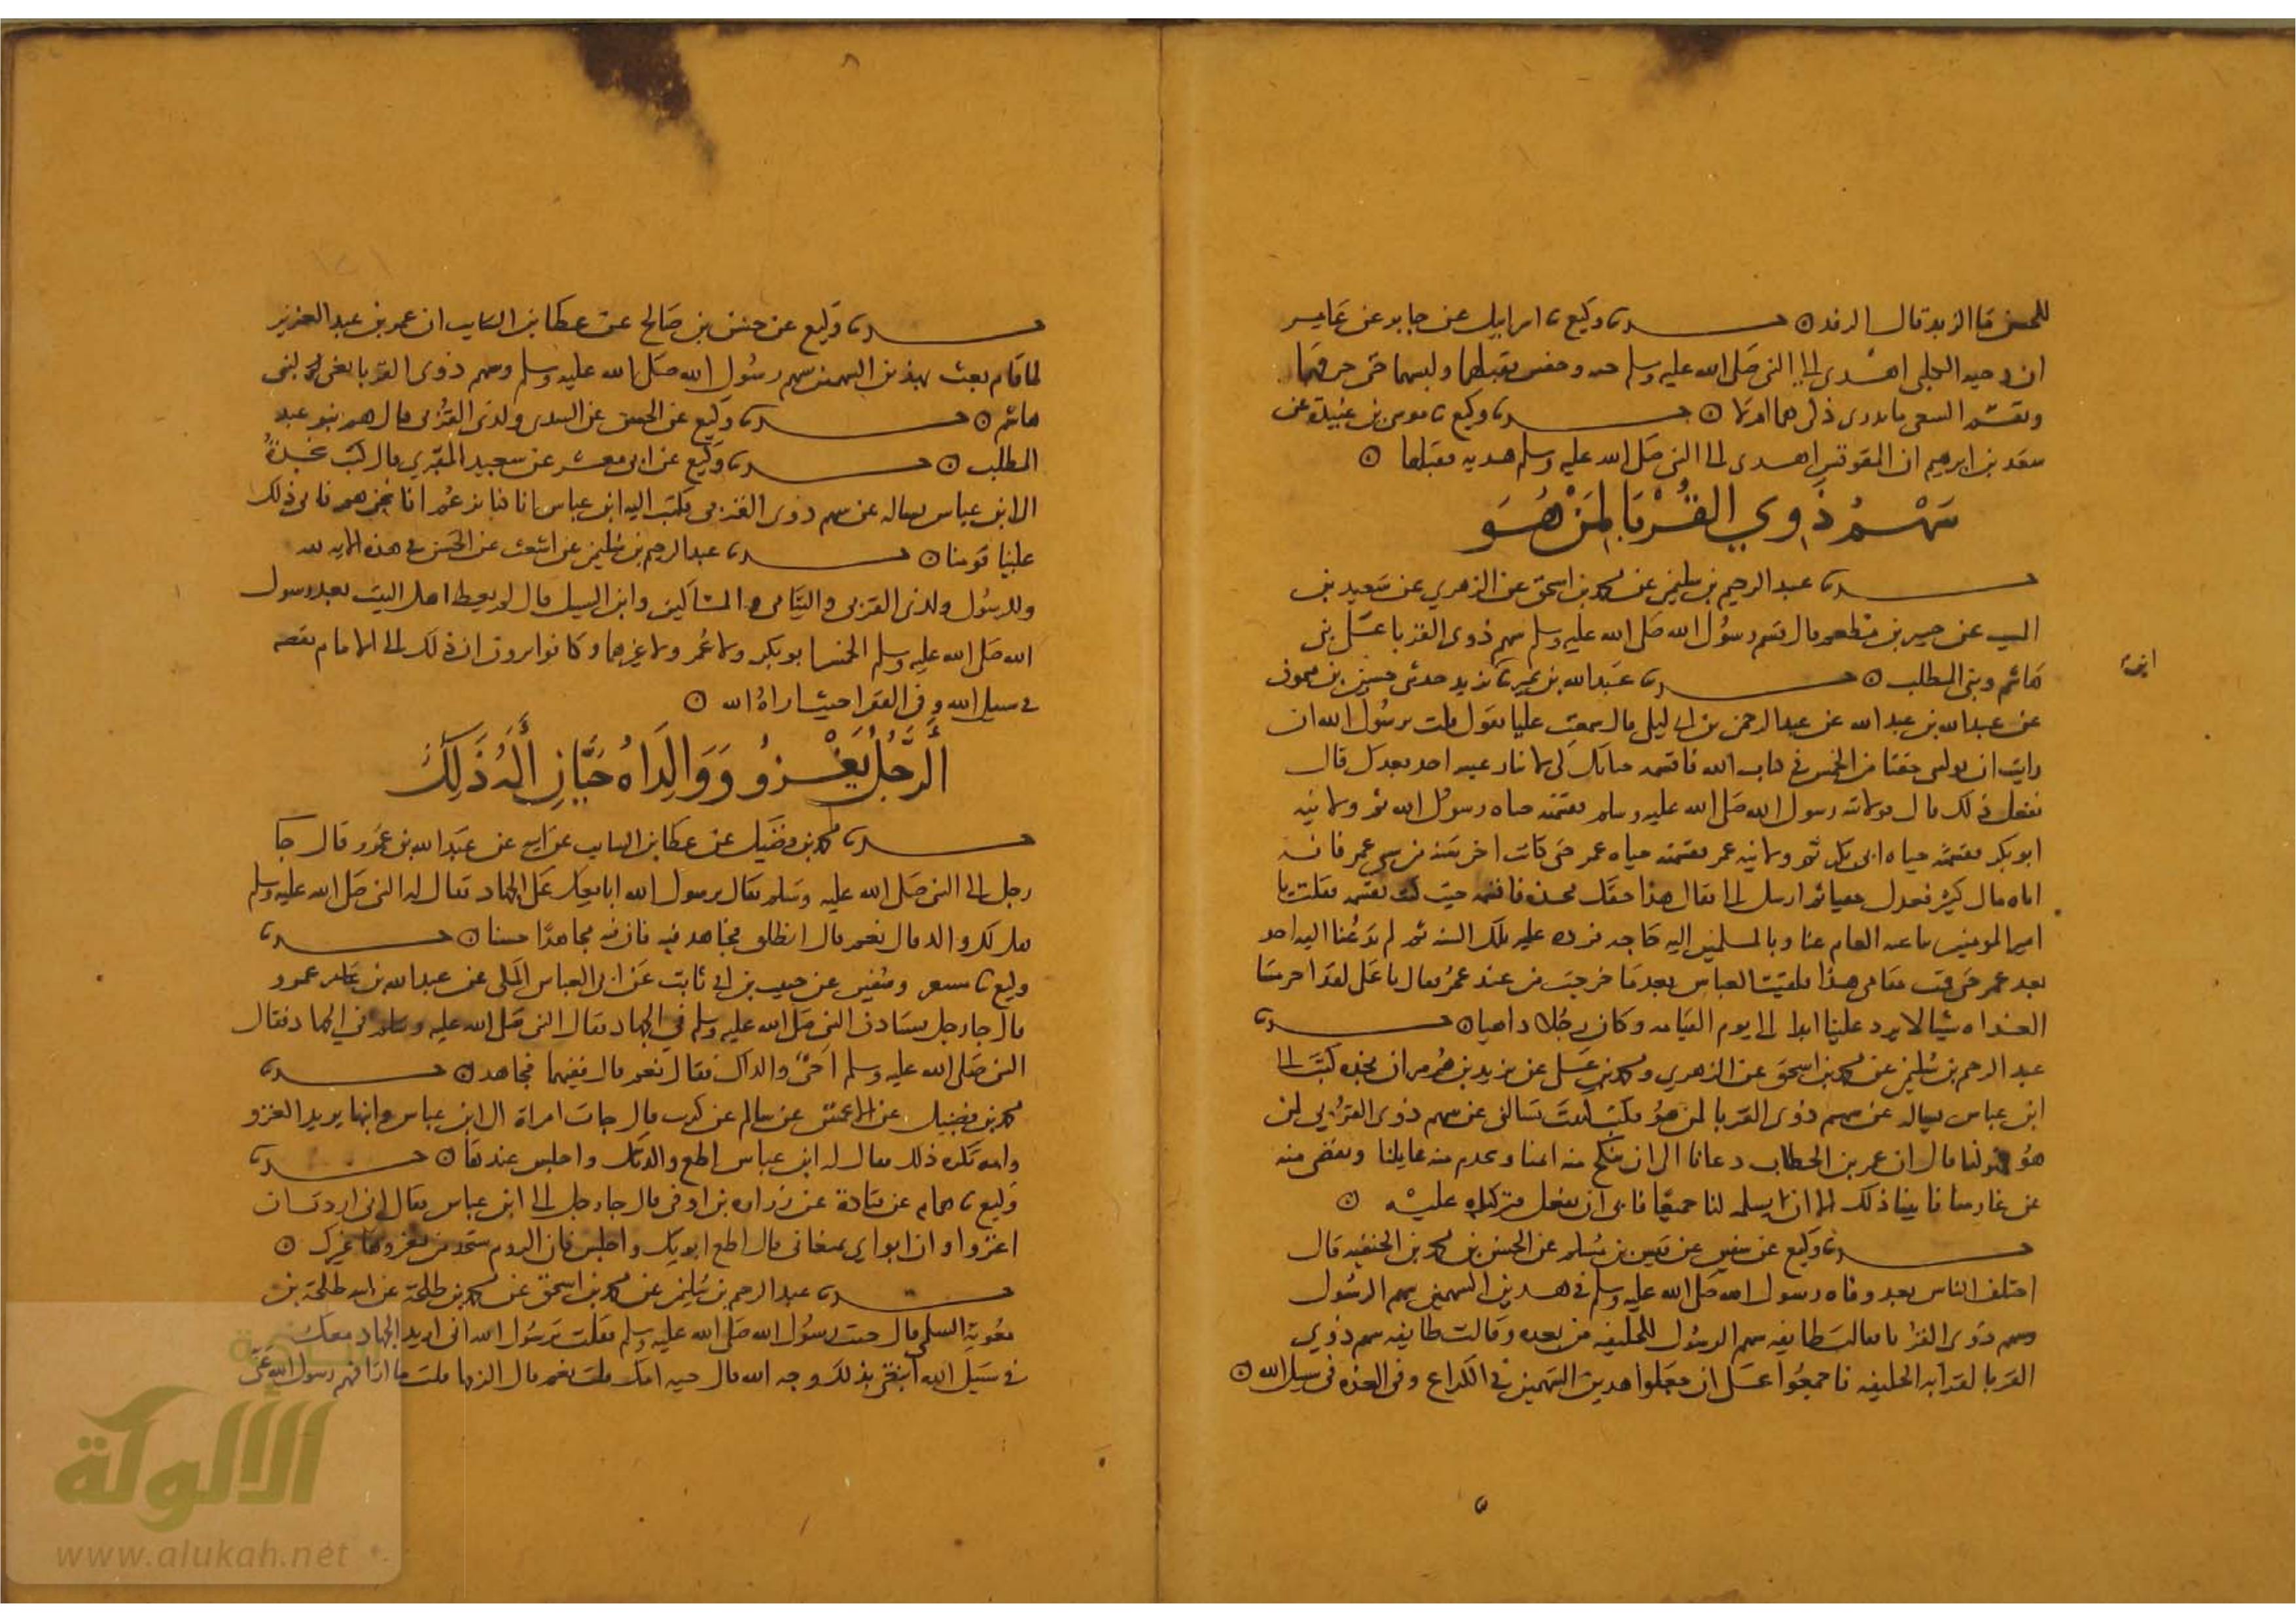 للحسن ما الزبد قال الرفد ○ حدثنا وكيع نا اسرايل عن جابر عن عامر
ان دحيه الكلبي اهدى الى النبي صلى الله عليه وسلم وخفين فقبلهما ولبسهما حتى خرقهما
الشعبي ما يدري ذكي هما ام لا ○ حدثنا وكيع نا موسى بن عبيدة عن
سعد بن ابرهيم ان المقوقس اهدى الى النبي صلى الله عليه وسلم هديه فقبلها ○
سهم ذوي القربا لمن هو
حدثنا عبد الرحيم بن سليمن عن محمد بن اسحق عن الزهري عن سعيد بن
المسيب عن جبير بن مطعم قال قسم رسول الله صلى الله عليه وسلم سهم ذوى القربا على بني
هاشم وبني المطلب ○ حدثنا عبد الله بن نمير نا يزيد حدثني حسين بن ميمون
عن عبد الله بن عبد الله عن عبد الرحمن بن ابي ليلى قال سمعت عليا يقول قلت يرسول الله ان
رايت ان توليني حقنا من الخمس في كتاب الله فاقسمه حياتك كي لا ينازعنيه احد بعدك قال
ففعل ذلك قال فولانيه رسول الله صلى الله عليه وسلم فقسمته حياه رسول الله ثم ولانيه
ابو بكر فقسمته حياه ابي بكر ثم ولانيه عمر فقسمته حياه عمر حتى كانت اخر سنه من سني عمر فانه
اتاه مال كثير فعزل حقنا ثم ارسل الى فقال هذا حقكم فخذه فاقسمه حيث كنت تقسمه فقلت يا
امير المومنين بنا عنه العام غنا وبالمسلمين اليه حاجه فرده عليهم تلك السنه ثم لم يدعنا اليه احد
بعد عمر حتى قمت مقامي هذا فلقيت العباس بعدما خرجت من عند عمر فقال يا على لقد احرمتنا
الغداه شيا لا يرد علينا ابدا الى يوم القيامه وكان رجلا داهيا ○ حدثنا
عبد الرحيم بن سليمن عن محمد بن اسحق عن الزهري ومحمد بن على عن يزيد بن هرمز ان نجده كتب الى
ابن عباس يساله عن سهم ذوى القربا لمن هو فكتب كتبت تسالني عن سهم ذوى القربي لمن
هو هو لنا قال ان عمر بن الخطاب دعانا الى ان ينكح منه ايمنا ويخدم منه عايلنا ونقضى منه
عن غارمنا فابينا ذلك الا ان يسلمه لنا جميعا فابى ان يفعل فتركناه عليه ○
حدثنا وكيع عن سفين عن قيس بن مسلم عن الحسن بن محمد بن الحنفيه قال
اختلف الناس بعد وفاه رسول الله صلى الله عليه وسلم في هذين السهمين سهم الرسول
وسهم ذوى القربا فقالت طايفه سهم الرسول للخليفه من بعده وقالت طايفه سهم ذوي
القربا لقرابه الخليفه فاجمعوا على ان يجعلوا هذين السهمين في الكراع وفي العده في سبيل الله ○
ابن
حدثنا وكيع عن حسن بن صالح عن عطا بن السايب ان عمر بن عبد العزيز
لما قام بعث بهذين السهمين سهم رسول الله صلى الله عليه وسلم وسهم ذوى القربا يعني لبني
هاشم ○ حدثنا وكيع عن الحسن عن السدى ولذى القربى قال هم بنو عبد
المطلب ○ حدثنا وكيع عن ابي معشر عن سعيد المقبري قال كتب نجدة
الى ابن عباس يساله عن سهم ذوى القربى فكتب اليه ابن عباس انا كنا نزعم انا نحن هم فابى ذلك
علينا قومنا ○ حدثنا عبد الرحيم بن سليمن عن اشعث عن الحسن في هذه الايه لله
وللرسول ولذى القربى واليتامى والمساكين وابن السبيل قال لم يعط اهل البيت بعد رسول
الله صلى الله عليه وسلم الخمس ابو بكر ولا عمر ولا غيرهما وكانوا يرون ان ذلك الى الامام يضعه
في سبيل الله وفي الفقرا حيث اراه الله ○
الرجل يغزو ووالداه حيان اله ذلك
حدثنا محمد بن فضيل عن عطا بن السايب عن ابيه عن عبد الله بن عمرو قال جا
رجل الى النبي صلى الله عليه وسلم فقال يرسول الله ابايعك على الجهاد فقال له النبي صلى الله عليه وسلم
هل لك والد قال نعم قال انطلق فجاهد فيه فان فيه مجاهدا حسنا ○ حدثنا
وكيع نا مسعر وسفين عن حبيب بن ابي ثابت عن ابي العباس المكي عن عبد الله بن عمرو
قال جا رجل يستاذن النبي صلى الله عليه وسلم في الجهاد فقال النبي صلى الله عليه وسلم في الجهاد فقال
النبي صلى الله عليه وسلم احي والداك فقال نعم قال ففيهما فجاهد ○ حدثنا
محمد بن فضيل عن الاعمش عن سالم عن كريب قال جات امراة الى ابن عباس وابنها يريد الغزو
وامه تكره ذلك فقال له ابن عباس اطع والدتك واجلس عندها ○ حدثنا
وكيع نا همام عن قتادة عن زراره بن اوفى قال جا رجل الى ابن عباس فقال اني اردت ان
اغزوا وان ابواي يمنعاني قال اطع ابويك واجلس فان الروم ستجد من يغزوها غيرك ○
حدثنا عبد الرحيم بن سليمن عن محمد بن اسحق عن محمد بن طلحة عن ابيه طلحة بن
معوية السلمي قال جيت رسول الله صلى الله عليه وسلم فقلت يرسول الله اني اريد الجهاد معك
في سبيل الله ابتغي بذلك وجه الله قال حيه امك قلت نعم قال الزمها قلت ما ارا فهم رسول الله عني
الألوكة
www.alukah.net